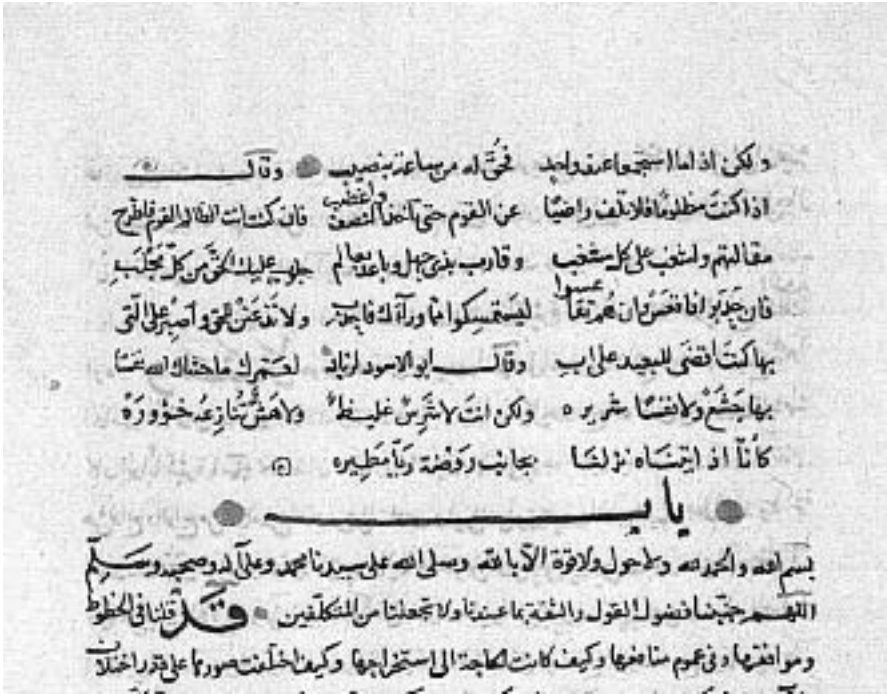 ولكن اذا ما استجمعوا عند واحد فحق له من ساعة بنصيب وقال
اذا كنت مظلوما فلا تلف راضيا عن القوم حتى تاخذ النصف واغضب فان كنت انت الظالم القوم فاطرح
مقالتهم واشغب على كل مشغب وقارب بذى جهل وباعد بعالم جلوب عليك الحق من كل مجلب
فان حدبوا فاقعس وان هم تقاعسوا ليستمسكوا مما وراءك فاحدب ولا تذعنن للحق واصبر على التى
بها كنت اقضى للبعيد على اب وقال ابو الاسود لزياد لعمرك ما حشاك الله نفسا
بها جشع ولا نفسا شريره ولكن انت لا شرس غليظ ولا هش تنازعه خؤوره
كانا اذ اتيناه نزلنا بجانب روضة ريا مطيره
باب
بسم الله والحمد لله ولا حول ولا قوة الا بالله وصلى الله على سيدنا محمد وعلى آله وصحبه وسلم
اللهم جنبنا فضول القول والثقة بما عندنا ولا تجعلنا من المتكلفين قد قلنا فى الخطوط
ومرافقها وفى عموم منافعها وكيف كانت الحاجة الى استخراجها وكيف اختلفت صورها على قدر اختلاف